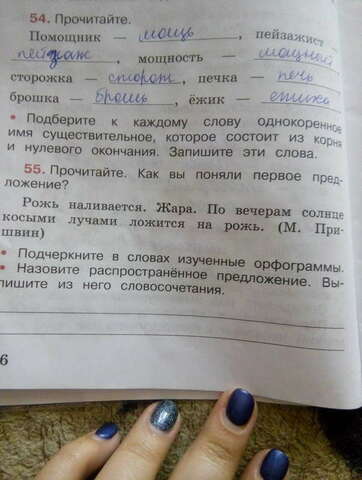 54. Прочитайте.
Помощник — мощь, пейзажист —
пейзаж, мощность — мощный
сторожка — сторож, печка — печь
брошка — брошь, ёжик —
• Подберите к каждому слову однокоренное
имя существительное, которое состоит из корня
и нулевого окончания. Запишите эти слова.
55. Прочитайте. Как вы поняли первое пред-
ложение?
Рожь наливается. Жара. По вечерам солнце
косыми лучами ложится на рожь. (М. При-
швин)
• Подчеркните в словах изученные орфограммы.
• Назовите распространённое предложение. Вы-
пишите из него словосочетания.
6